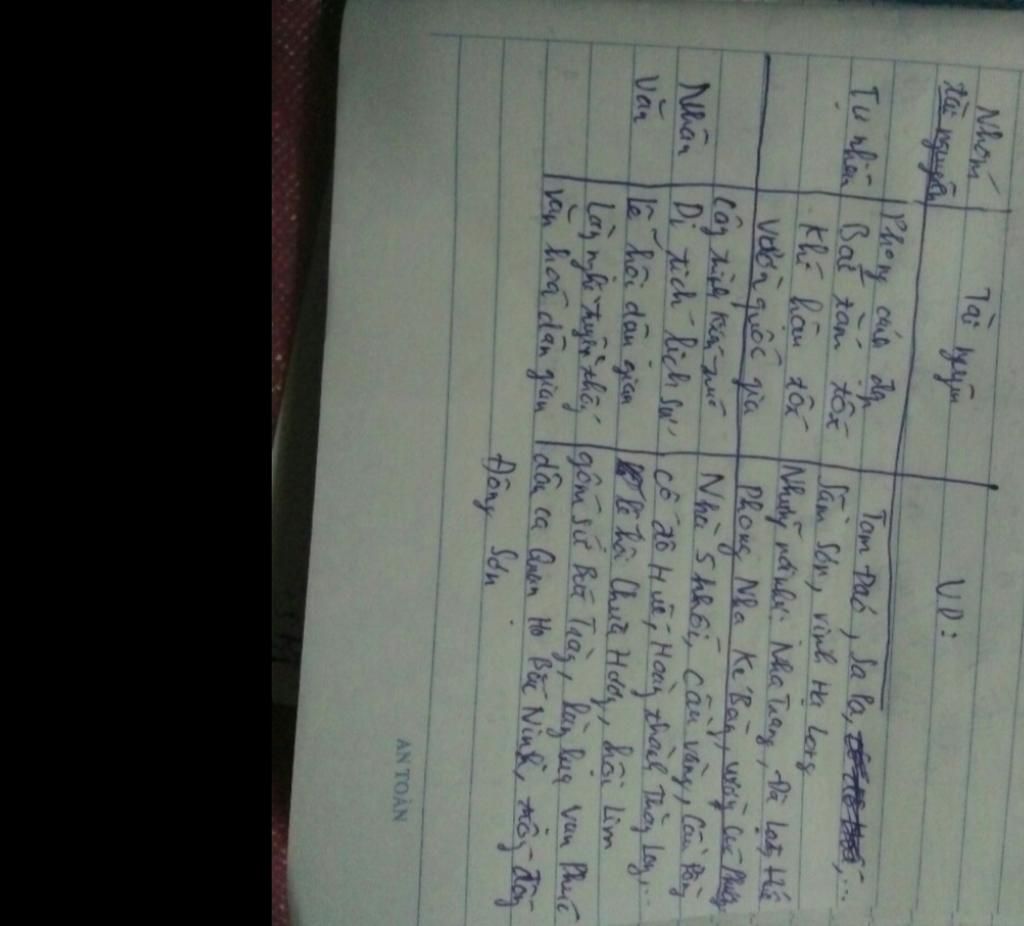 Nhóm tài nguyên
Tài nguyên
VD:
Tự nhiên
Phong cảnh đẹp
Bãi tắm tốt
Khí hậu tốt
Vườn quốc gia
Tam Đảo, Sa Pa, ...
Sầm Sơn, vịnh Hạ Long
Những nơi như: Nha Trang, Đà Lạt,
Phong Nha Kẻ Bàng, vườn Cúc Phương
Nhân
Văn
Công trình kiến trúc
Di tích lịch sử,
lễ hội dân gian
Làng nghề truyền thống
Văn hoá dân gian
Nhà cầu vàng, cầu
cố đô Huế, Hoàng thành Thăng Long, ...
lễ hội Chùa Hương, hội Lim
gốm sứ Bát Tràng, làng lụa Vạn Phúc
dân ca Quan Họ Bắc Ninh, trống đồng
Đông Sơn
AN TOÀN